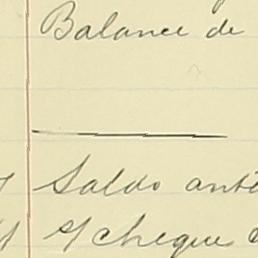 Balance de
Saldo anti
s/ cheque